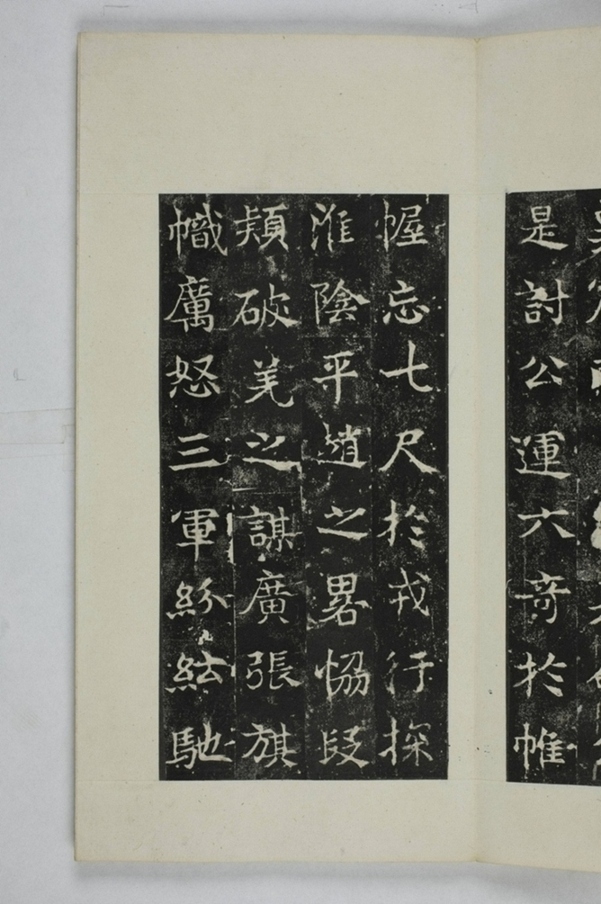 是討公運六奇於帷
幄忘七尺於戎行探
淮陰平趙之畧恊段
熲破羌之謀廣張旗
幟厲怒三軍紛紜馳